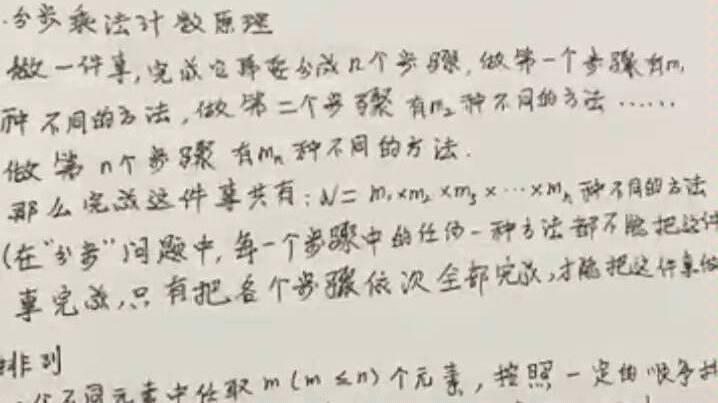 ·分步乘法计数原理
做一件事,完成它需要分成n个步骤,做第一个步骤有m₁
种不同的方法,做第二个步骤有m₂种不同的方法……
做第n个步骤有mₙ种不同的方法.
那么完成这件事共有:N=m₁×m₂×m₃×…×mₙ种不同的方法
(在"分步"问题中,每一个步骤中的任何一种方法都不能把这件
事完成,只有把各个步骤依次全部完成,才能把这件事做
排列
个不同元素中任取m(m≤n)个元素,按照一定的顺序排